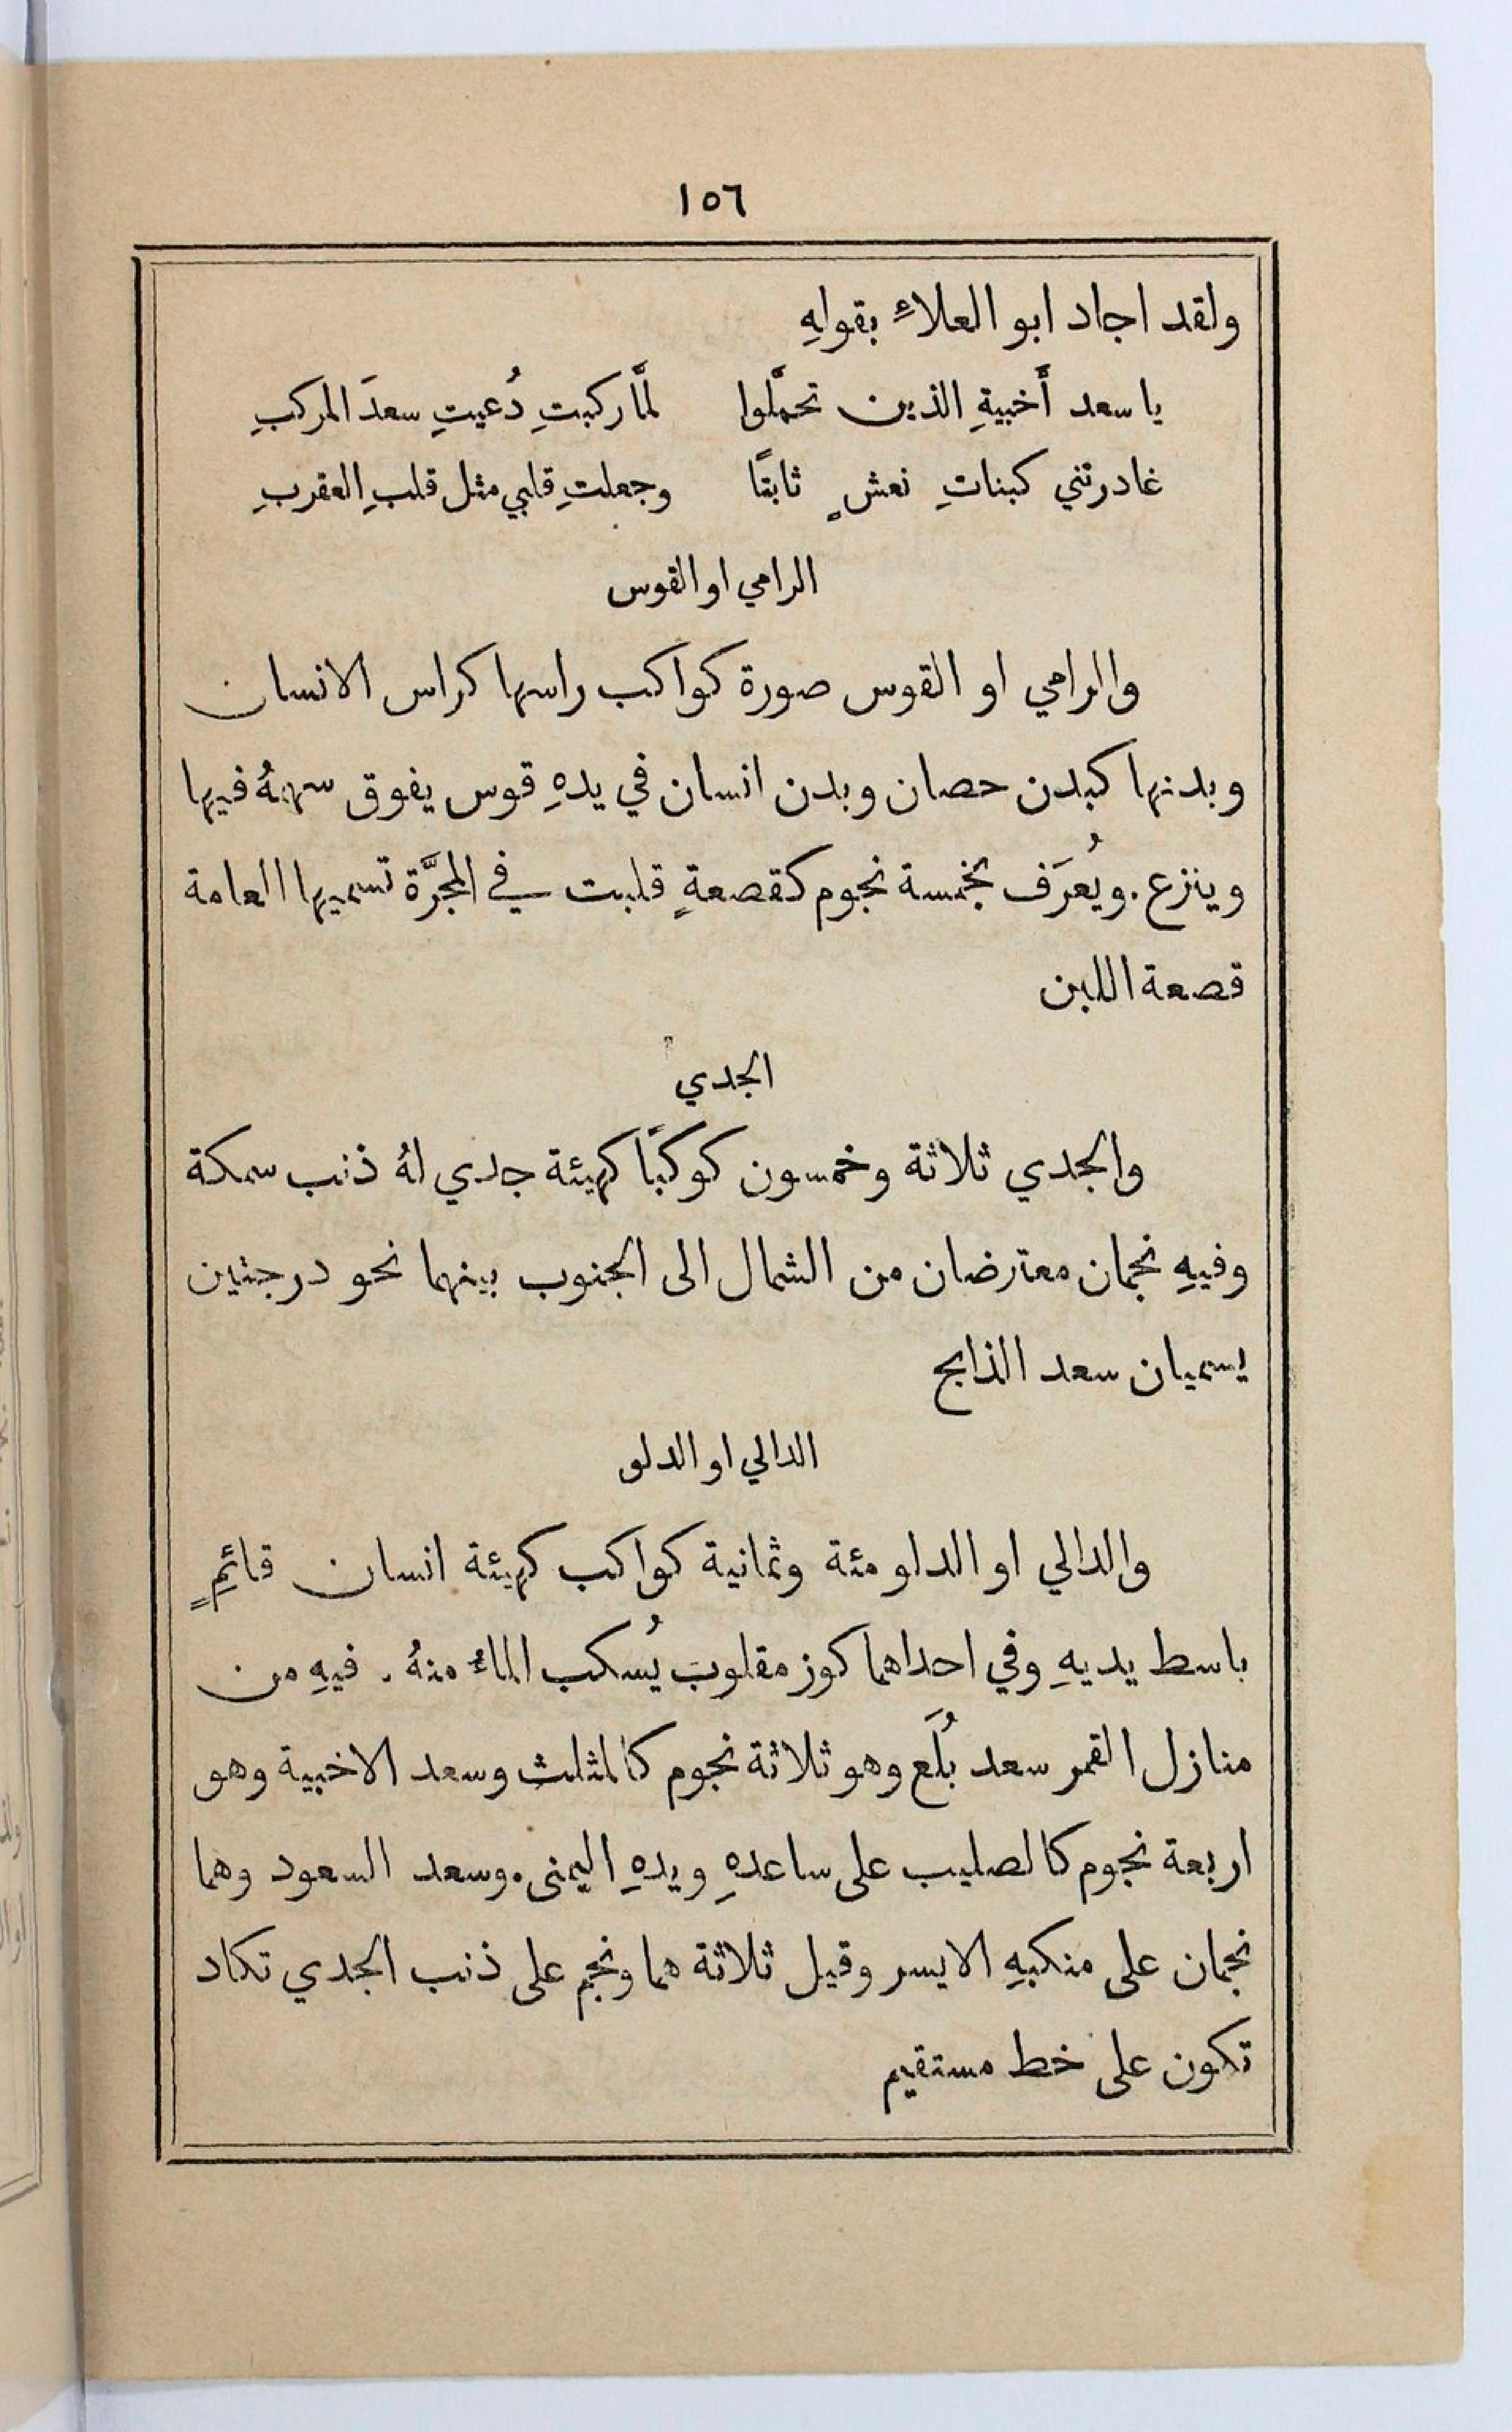 ١٥٦
ولقد اجاد ابو العلاءِ بقولهِ
يا سعد أَخبيةِ الذين تحمَّلوا لمَّا ركبتِ دُعيتِ سعدَ المركبِ
غادرتني كبناتِ نعشٍ ثابتًا وجعلتِ قلبي مثل قلبِ العقربِ
الرامي او القوس
والرامي او القوس صورة كواكب راسها كراس الانسان
وبدنها كبدن حصان وبدن انسان في يدهِ قوس يفوق سهمهُ فيها
وينزع. ويُعرَف بخمسة نجوم كقصعةٍ قلبت في المجرَّة تسميها العامة
قصعة اللبن
الجدي
والجدي ثلاثة وخمسون كوكبًا كهيئة جدي لهُ ذنب سمكة
وفيهِ نجمان معترضان من الشمال الى الجنوب بينهما نحو درجتين
يسميان سعد الذابح
الدالي او الدلو
والدالي او الدلو مئة وثمانية كواكب كهيئة انسان قائمٍ
باسط يديهِ وفي احداهما كوز مقلوب يُسكب الماءُ منهُ. فيهِ من
منازل القمر سعد بُلَع وهو ثلاثة نجوم كالمثلث وسعد الاخبية وهو
اربعة نجوم كالصليب على ساعدهِ ويدهِ اليمنى. وسعد السعود وهما
نجمان على منكبهِ الايسر وقيل ثلاثة هما ونجم على ذنب الجدي تكاد
تكون على خط مستقيم